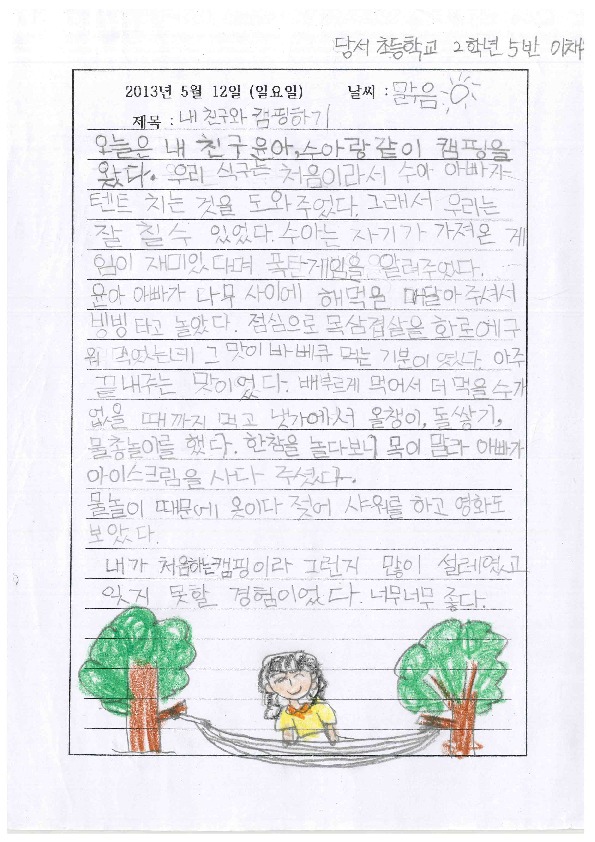 당서 초등학교 2학년 5반 이채
2013년 5월 12일 (일요일) 날씨 : 맑음
제목 : 내 친구와 캠핑하기
오늘은 내 친구 윤아, 수아랑 같이 캠핑을
왔다. 우리 식구는 처음이라서 수아 아빠가
텐트 치는 것을 도와주었다. 그래서 우리는
잘 칠 수 있었다. 수아는 자기가 가져온 게
임이 재미있다며 폭탄게임을 알려주었다.
윤아 아빠가 나무 사이에 해먹을 매달아 주셔서
빙빙 타고 놀았다. 점심으로 목삼겹살을 화로에구
워 먹었는데 그 맛이 바베큐 먹는 기분이였다. 아주
끝내주는 맛이었다. 배부르게 먹어서 더 먹을 수가
없을 때까지 먹고 냇가에서 올챙이, 돌쌓기,
물총놀이를 했다. 한참을 놀다보니 목이 말라 아빠가
아이스크림을 사다 주셨다.
물놀이 때문에 옷이다 젖어 샤워를 하고 영화도
보았다.
내가 처음하는캠핑이라 그런지 많이 설레였고
잊지 못할 경험이었다. 너무너무 좋다.